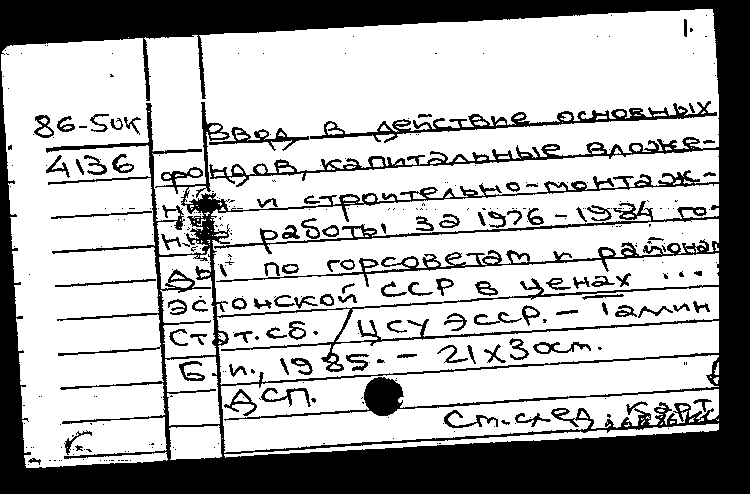 1.
86-5ок
4136
Ввод в действие основных
фондов, капитальные вложе-
ния и строительно-монтаж-
ные работы за 1976-1984 го-
ды по горсоветам и районам
Эстонской ССР в ценах ... :
Стат.сб. / ЦСУ ЭССР. - Таллин
Б.и., 1985. - 21х30ст.
ДСП.
См. след. карт